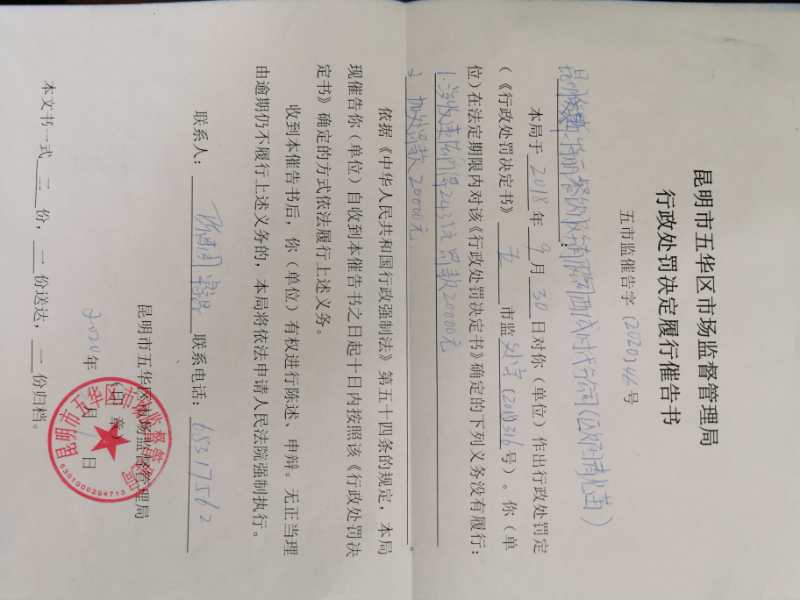 昆明市五华区市场监督管理局
行政处罚决定履行催告书
五市监催告字（2020）46号
本局于 2018 年 9 月 30 日对你（单位）作出行政处罚定
（《行政处罚决定书》 五 市监 处字（2018）316号）。你（单
位）在法定期限内对该《行政处罚决定书》确定的下列义务没有履行：
罚款20000元
2、加处罚款20000元
依据《中华人民共和国行政强制法》第五十四条的规定，本局
现催告你（单位）自收到本催告书之日起十日内按照该《行政处罚决
定书》确定的方式依法履行上述义务。
收到本催告书后，你（单位）有权进行陈述、申辩。无正当理
由逾期仍不履行上述义务的，本局将依法申请人民法院强制执行。
联系人： 联系电话：65317562
昆明市五华区市场监督管理局
（印 章）
2020年 月 1 日
本文书一式 二 份，一 份送达，一 份归档。
昆明市五华区市场监督管理局
5301000294713